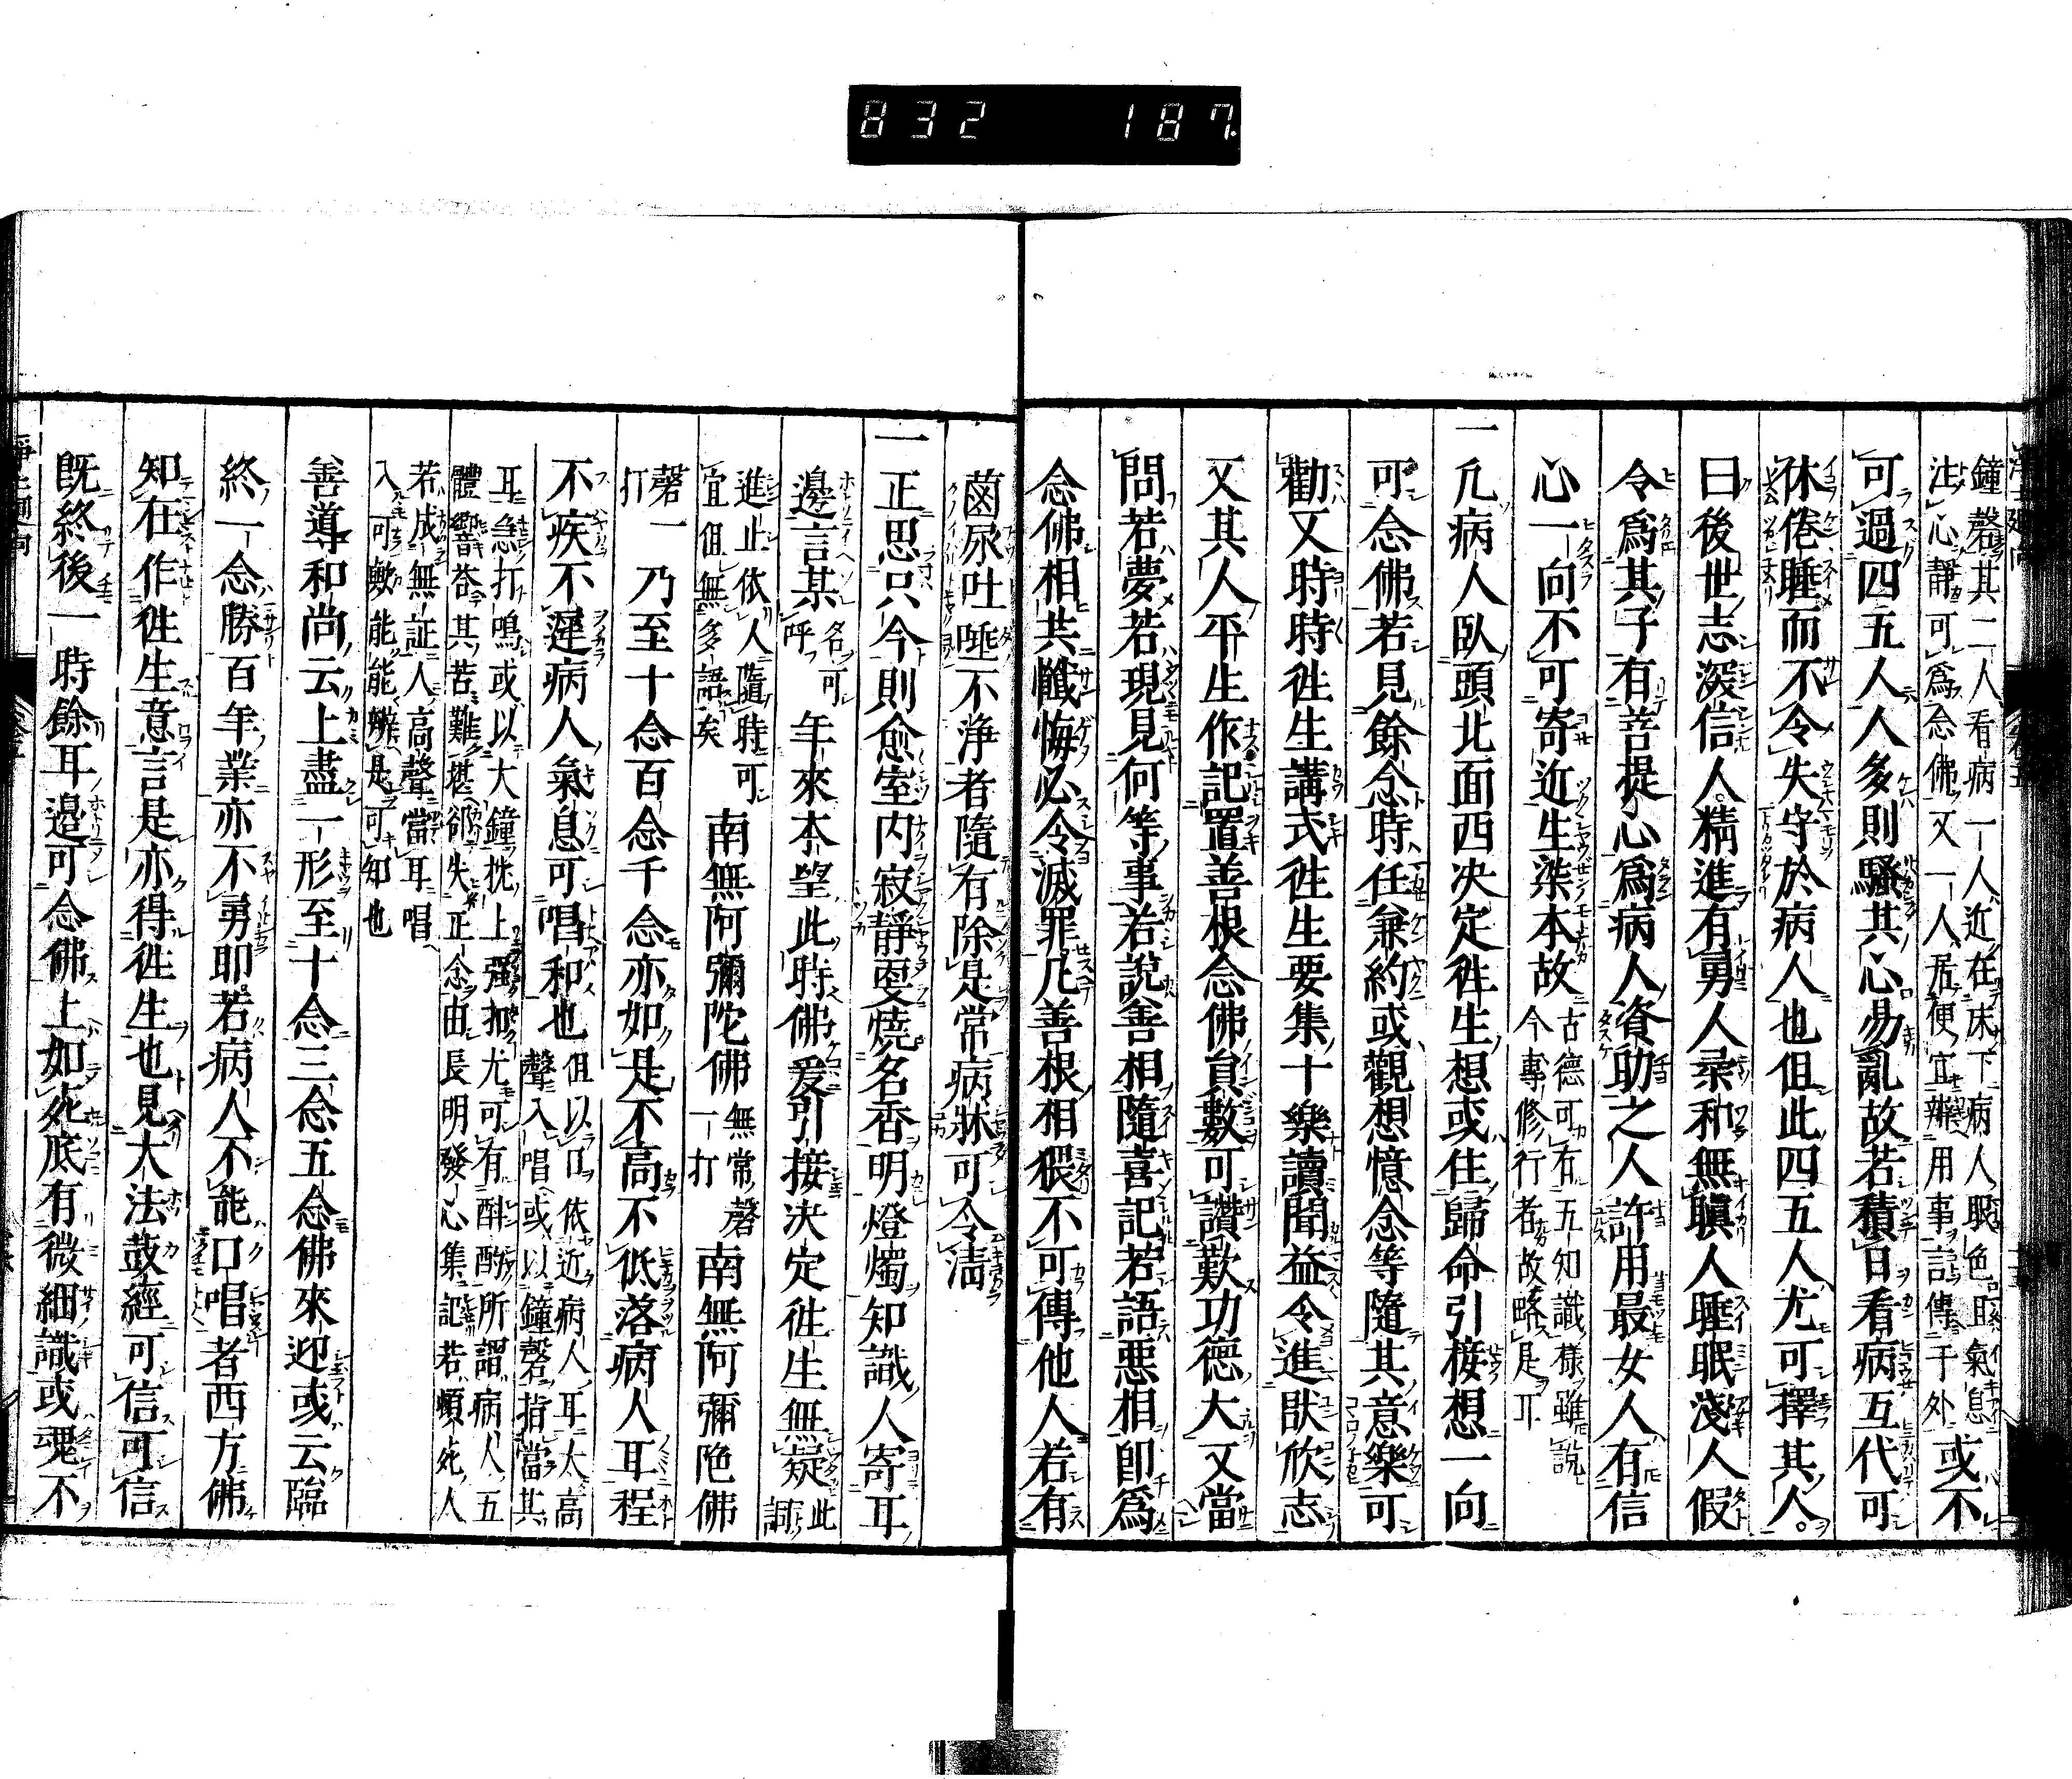 832 187
鐘磬其二人看病一人近在床下病人眼色口〓氣息或不
注心靜可爲念佛又一人居便宜辦用事言傳于外
可過四五人人多則騷其心易亂故若積日看病互代可
休倦睡而不令失守於病人也但此四五人尤可擇其人
曰後世志深信人精進有勇人柔和無瞋人睡眠淺人假
令爲其子有菩提心爲病人資助之人許用最女人有信
心一向不可寄近生染本故古德可有五知識樣雖説
今專修行者故略是耳
一凢病人臥頭北面西决定徃生想或住歸命引接想一向
可念佛若見餘念時任兼約或觀想憶念等隨其意樂可
勸又時時徃生講式徃生要集十樂讀聞益令進猒欣志
又其人平生作記置善根念佛員數可讚歎功德大又當
問若夢若現見何等事若說善相隨喜記若語惡相即爲
念佛相共懺悔必令滅罪凢善根相猥不可傳他人若有
薗尿吐唾不淨者隨有除是常病牀可令淸
一正思只今則愈室内寂靜更燒名香明燈燭知識人寄耳
邊言某名可呼年來本望此時佛爰引接决定徃生無疑此詞
進止依人隨時可
宜但無多語矣
南無阿彌陀佛無常磬一打南無阿彌陁佛
磬一打
乃至十念百念千念亦如是不高不低落病人耳程
不疾不遲病人氣息可唱和也但以口依近病人耳太高
聲入唱或以鐘磬指當其
耳急打鳴或以大鐘枕上强扣尤可有斟酌所謂病人五
體響荅其苦難堪郤失正念由長明發心集記若頻死人
若成無証人高聲當耳唱
入可歟能能辨是可知也
善導和尚云上盡一形至十念三念五念佛來迎或云臨
終一念勝百年業亦不勇耶若病人不能口唱者西方佛
知在作徃生意言是亦得徃生也見大法鼓經可信可信
既終後一時餘耳邉可念佛上如死底有微細識或魂不